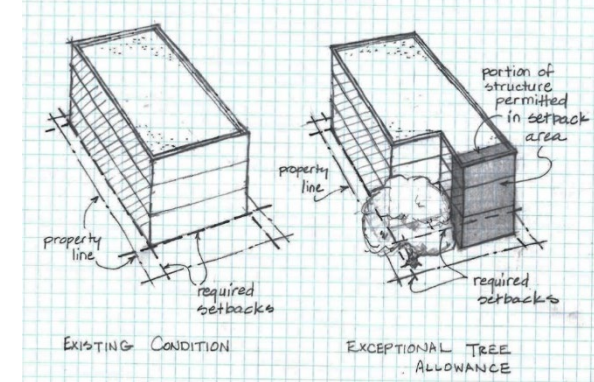 property
line
required
setbacks
EXISTING CONDITION
portion of
structure
permitted
in setback
area
property
line
required
setbacks
EXCEPTIONAL TREE
ALLOWANCE